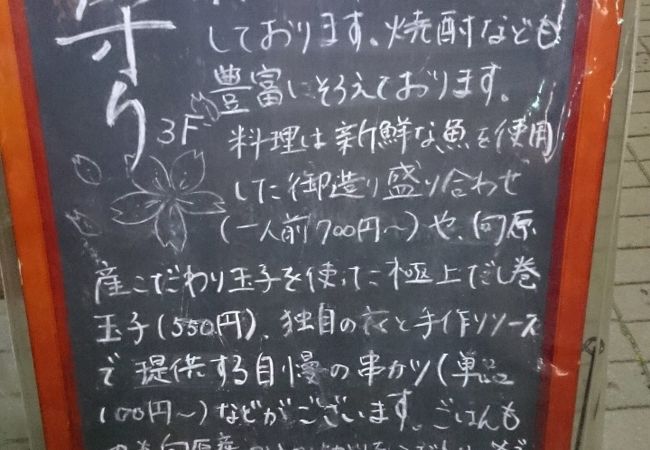 しております。焼酎なども
豊富にそろえております。
3F
料理は新鮮な魚を使用
した御造り盛り合わせ
(一人前700円〜)や、向原
産こだわり玉子を使った極上だし巻
玉子(550円)、独自の衣と手作りソース
で提供する自慢の串カツ(単品
100円〜)などがございます。ごはんも
向原産